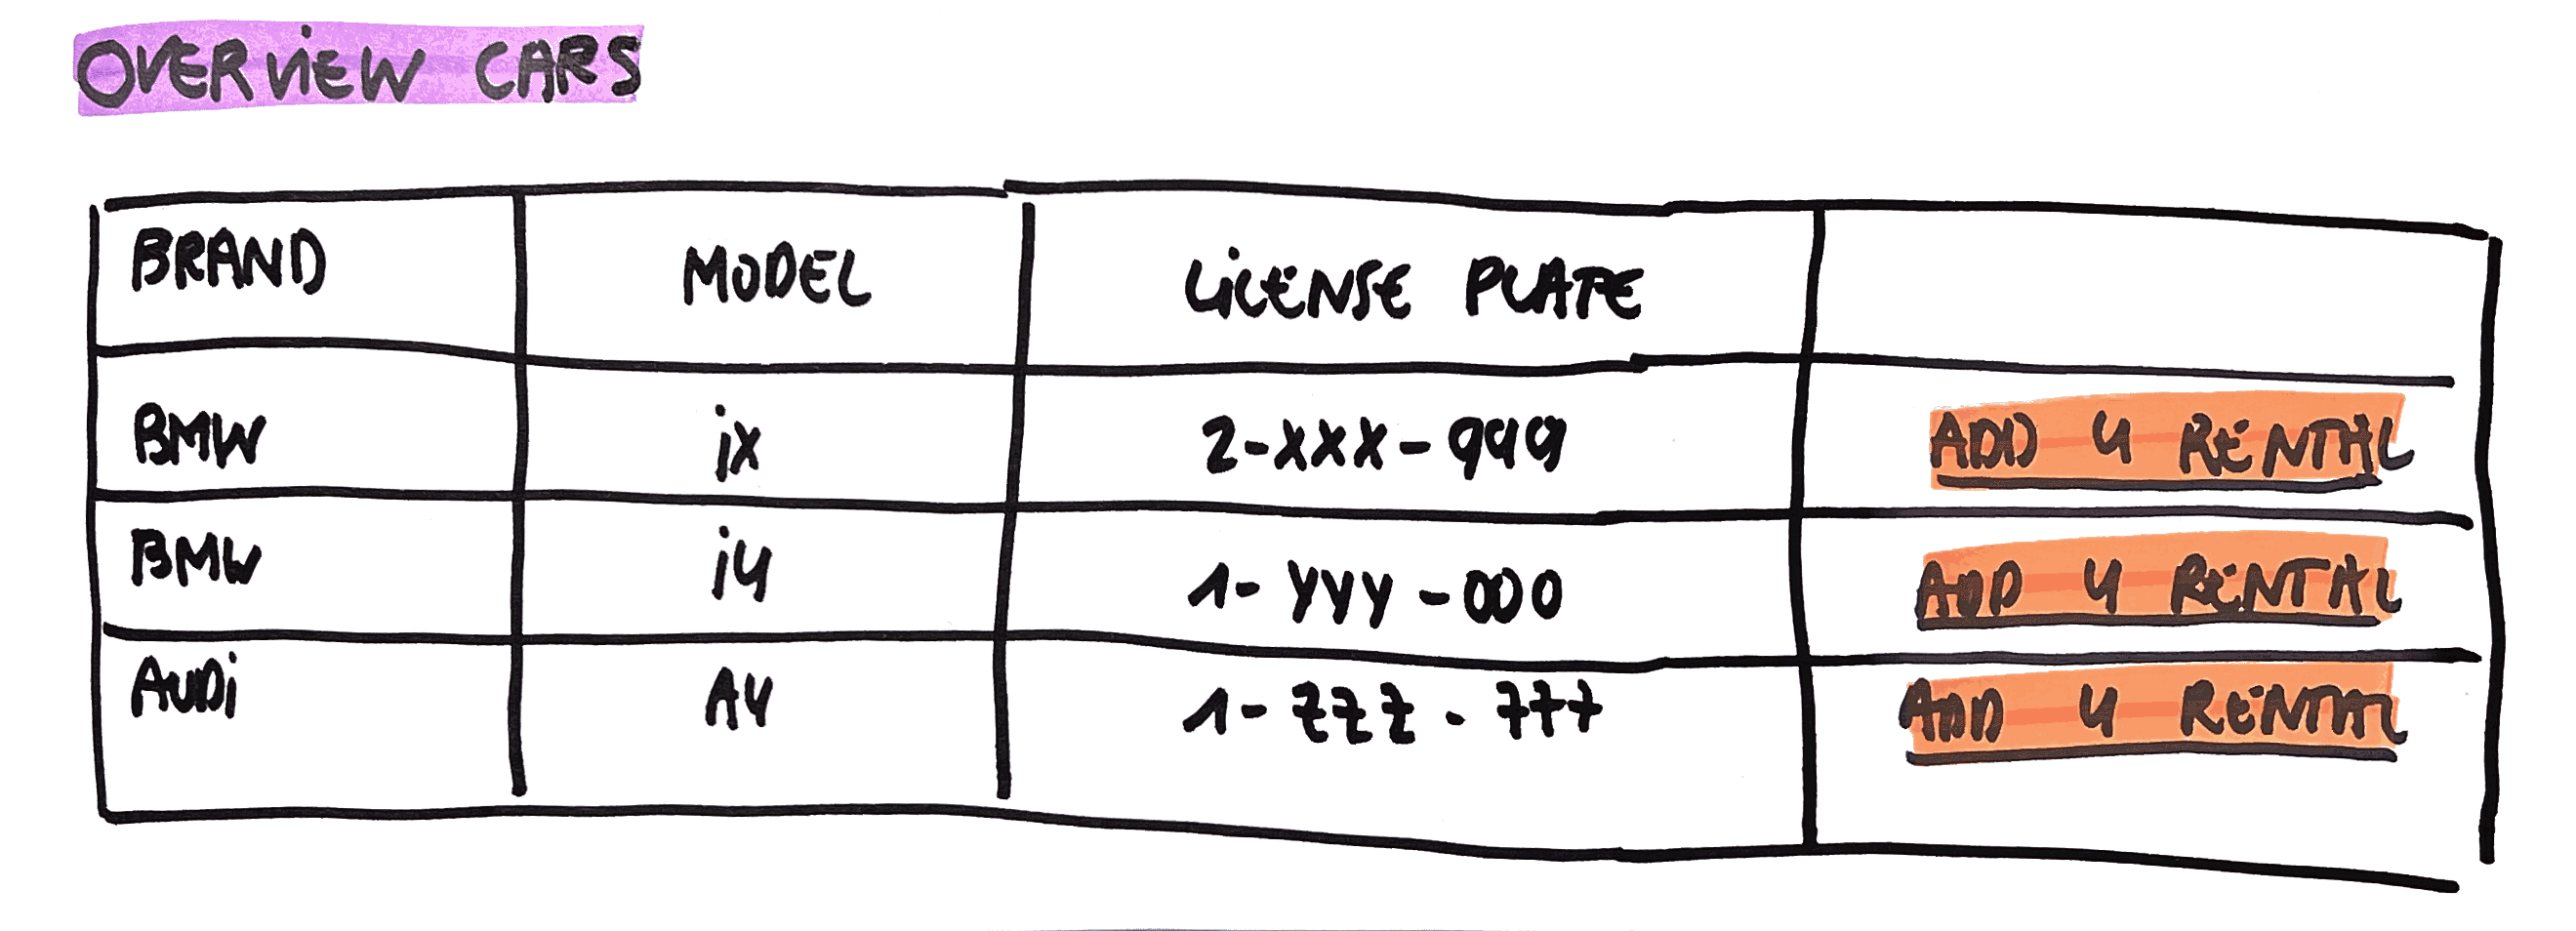 OVERVIEW CARS
BRAND MODEL LICENSE PLATE
BMW iX 2-XXX-999 ADD 4 RENTAL
BMW i4 1-YYY-000 ADD 4 RENTAL
AUDi A4 1-ZZZ-777 ADD 4 RENTAL